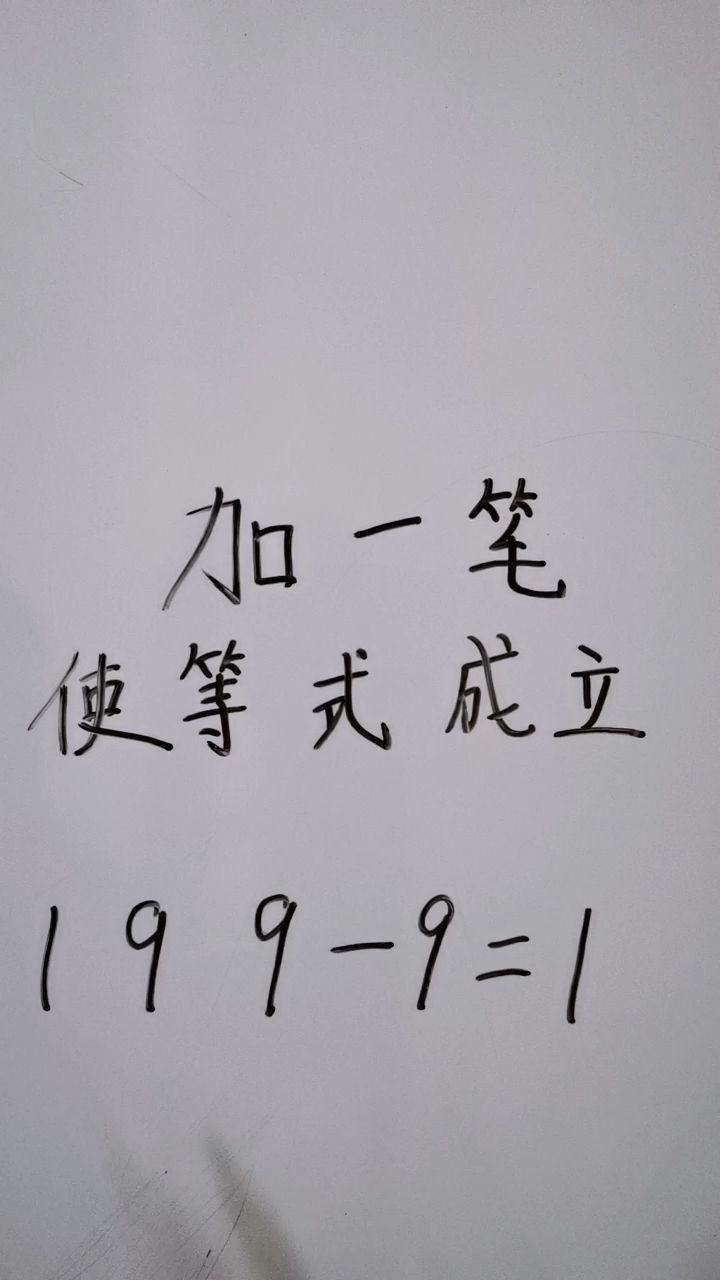 加一笔
使等式成立
199-9=1